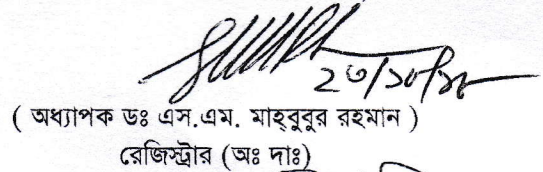 ২৩/১০/১৮
( অধ্যাপক ডঃ এস.এম. মাহ্‌বুবুর রহমান )
রেজিস্ট্রার (অঃ দাঃ)